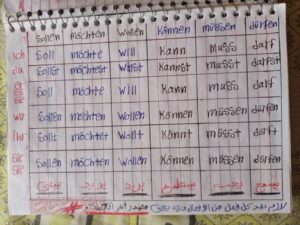 sollen möchten wollen können müssen dürfen
ich soll möchte will kann muss darf
du sollst möchtest willst kannst musst darfst
er soll möchte will kann muss darf
wir sollen möchten wollen können müssen dürfen
ihr sollt möchtet wollt könnt müsst dürft
sie sollen möchten wollen können müssen dürfen
ينبغي يريد يريد يستطيع يجب يسمح
لازم بعد كل فعل من الأفعال